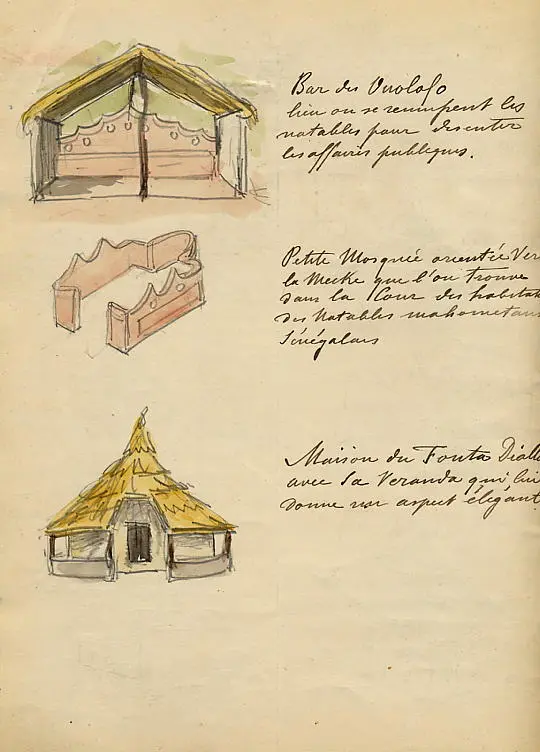 Bar des Ouolofs
lieu ou se reunissent les
notables pour discuter
les affaires publiques.
Petite Mosquée orientée Ver
la Mecke que l'on trouve
dans la Cour des habitati
des Notables mahometans
Sénégalais
Maison du Fouta Diall
avec sa Veranda qui lui
donne un aspect élégant